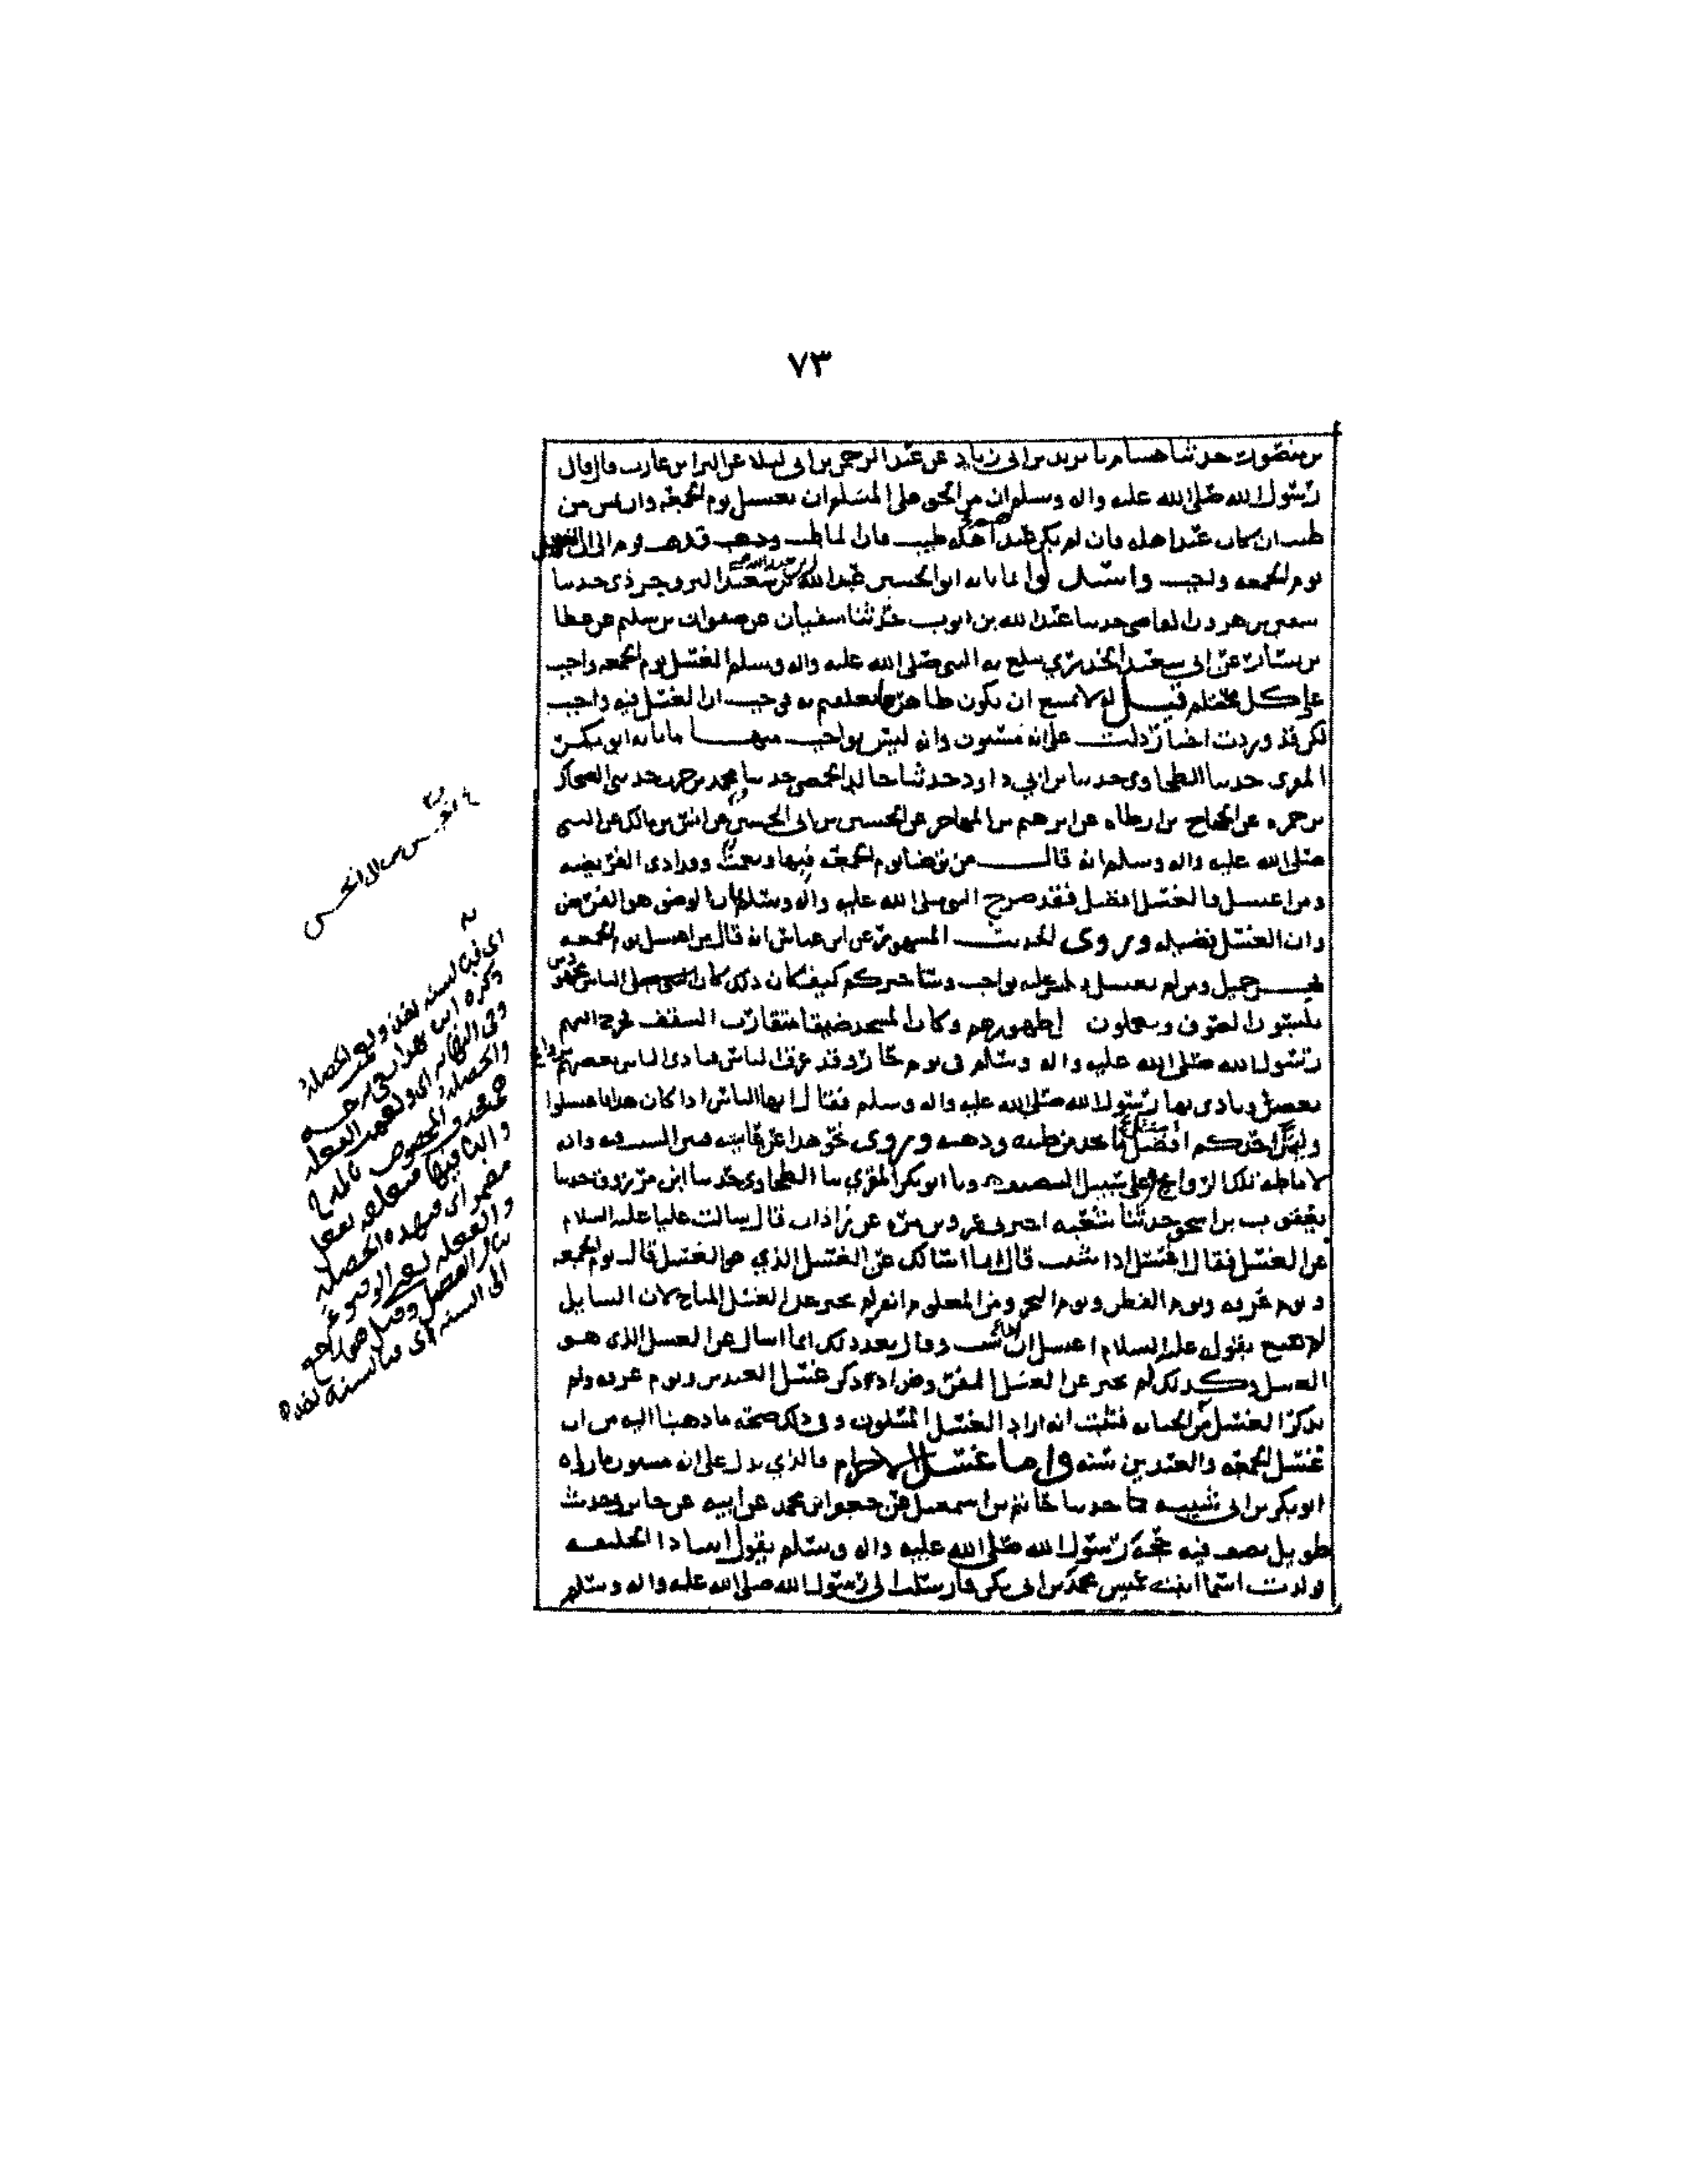 ٧٣
بن منصور حدثنا هشام بنا يزيد بن ابي زياد عن عبد الرحمن بن ابي ليلا عن البرا بن عازب قال قال
رسول الله صلى الله عليه واله وسلم ان من الحق على المسلمين ان يغتسل يوم الجمعة وان يمس من
طيب ان كان عند اهله فان لم يكن عند اهله طيب فان الما طيب وذهب قوم الى ان الغسل
يوم الجمعه واجب واستدلوا بما نا به ابو الحسين عبد الله بن سعيد البروجردي حدثنا
سفين بن هرون القاضي حدثنا عبد الله بن ايوب حدثنا سفيان عن صفوان بن سليم عن عطا
بن يسار عن ابي سعيد الخدري يبلغ به النبي صلى الله عليه واله وسلم الغسل يوم الجمعه واجب
على كل محتلم قيل له لا يمنع ان يكون ظاهر ما تعلقتم به يوجب ان الغسل فيه واجب
لكن قد وردت اخبار دلت على انه مسنون وانه ليس بواجب منها ما نا به ابو بكر
المقري حدثنا الطحاوي حدثنا بن ابي داود حدثنا خالد الحمصي حدثنا محمد بن حرب حدثني الضحاك
بن حمره عن الحجاج بن ارطاه عن ابرهيم بن المهاجر عن الحسن بن ابي الحسن عن انس بن مالك عن النبي
صلى الله عليه واله وسلم انه قال من توضا يوم الجمعة فبها ونعمت وقد ادى الفريضه
ومن اغتسل فالغسل افضل فقد صرح النبي صلى الله عليه واله وسلم بان الوضو هو الفرض
وان الغسل فضيله وروى الحديث المشهور عن ابن عباس انه قال من اغتسل يوم الجمعه
فحسن جميل ومن لم يغتسل فليس عليه بواجب وساخبركم كيف كان ذلك كان الناس مجهودين
يلبسون الصوف ويعملون لظهورهم وكان المسجد ضيقا متقارب السقف فخرج اليهم
رسول الله صلى الله عليه واله وسلم في يوم حار وقد عرق الناس فتاذى الناس بعضهم بروائح
بعض وتاذى بها رسول الله صلى الله عليه واله وسلم فقال ايها الناس اذا كان هذا فاغتسلوا
وليمس احدكم افضل ما يجد من طيبه ودهنه وروى نحو هذا عن عايشه فبين السبب فيه وانه
لاماطه تلك الروائح وعلى سبيل ونا ابو بكر المقري نا الطحاوي حدثنا ابن مرزوق حدثنا
يعقوب بن اسحق حدثنا شعبه اخبرني عمرو بن مره عن زاذان قال سالت عليا عليه السلام
عن الغسل فقال اغتسل اذا شئت قال انما اسالك عن الغسل الذي هو الغسل قال يوم الجمعه
ويوم عرفه ويوم الفطر ويوم النحر ومن المعلوم انه لم يخبر عن الغسل المباح لان السايل
لم يقنع بقوله عليه السلام اغتسل اذا شئت وقال بعد ذلك انما اسال عن الغسل الذي هو
الغسل وكذلك لم يخبر عن الغسل المفروض اذ ذكر غسل العيدين ويوم عرفه ولم
يذكر الغسل من الجنابه فثبت انه اراد الغسل المسنون وفي ذلك صحة ما ذهبنا اليه من ان
غسل الجمعة والعيدين سنه واما غسل الاحرام فالذي يدل على انه مسنون ما رواه
ابو بكر بن ابي شيبه حدثنا حاتم بن اسمعيل عن جعفر بن محمد عن ابيه عن جابر في حديث
طويل يصف فيه حجة رسول الله صلى الله عليه واله وسلم يقول اتينا ذا الحليفه
فولدت اسما ابنت عميس محمد بن ابي بكر فارسلت الى رسول الله صلى الله عليه واله وسلم
الحسن بن ابي الحسن
اي فبالسنه اخذ ونعم الخصله
ذكره ابن
وفي النهايه اي ونعمت الفعله
والخصله
محذوف المخصوص بالمدح
والبا فيها متعلقه بفعل
مضمر اي فبهذه الخصله
والفعله يعني الوضوء
ينال الفضل وقيل هو راجع
الى السنه اي فبالسنه اخذ